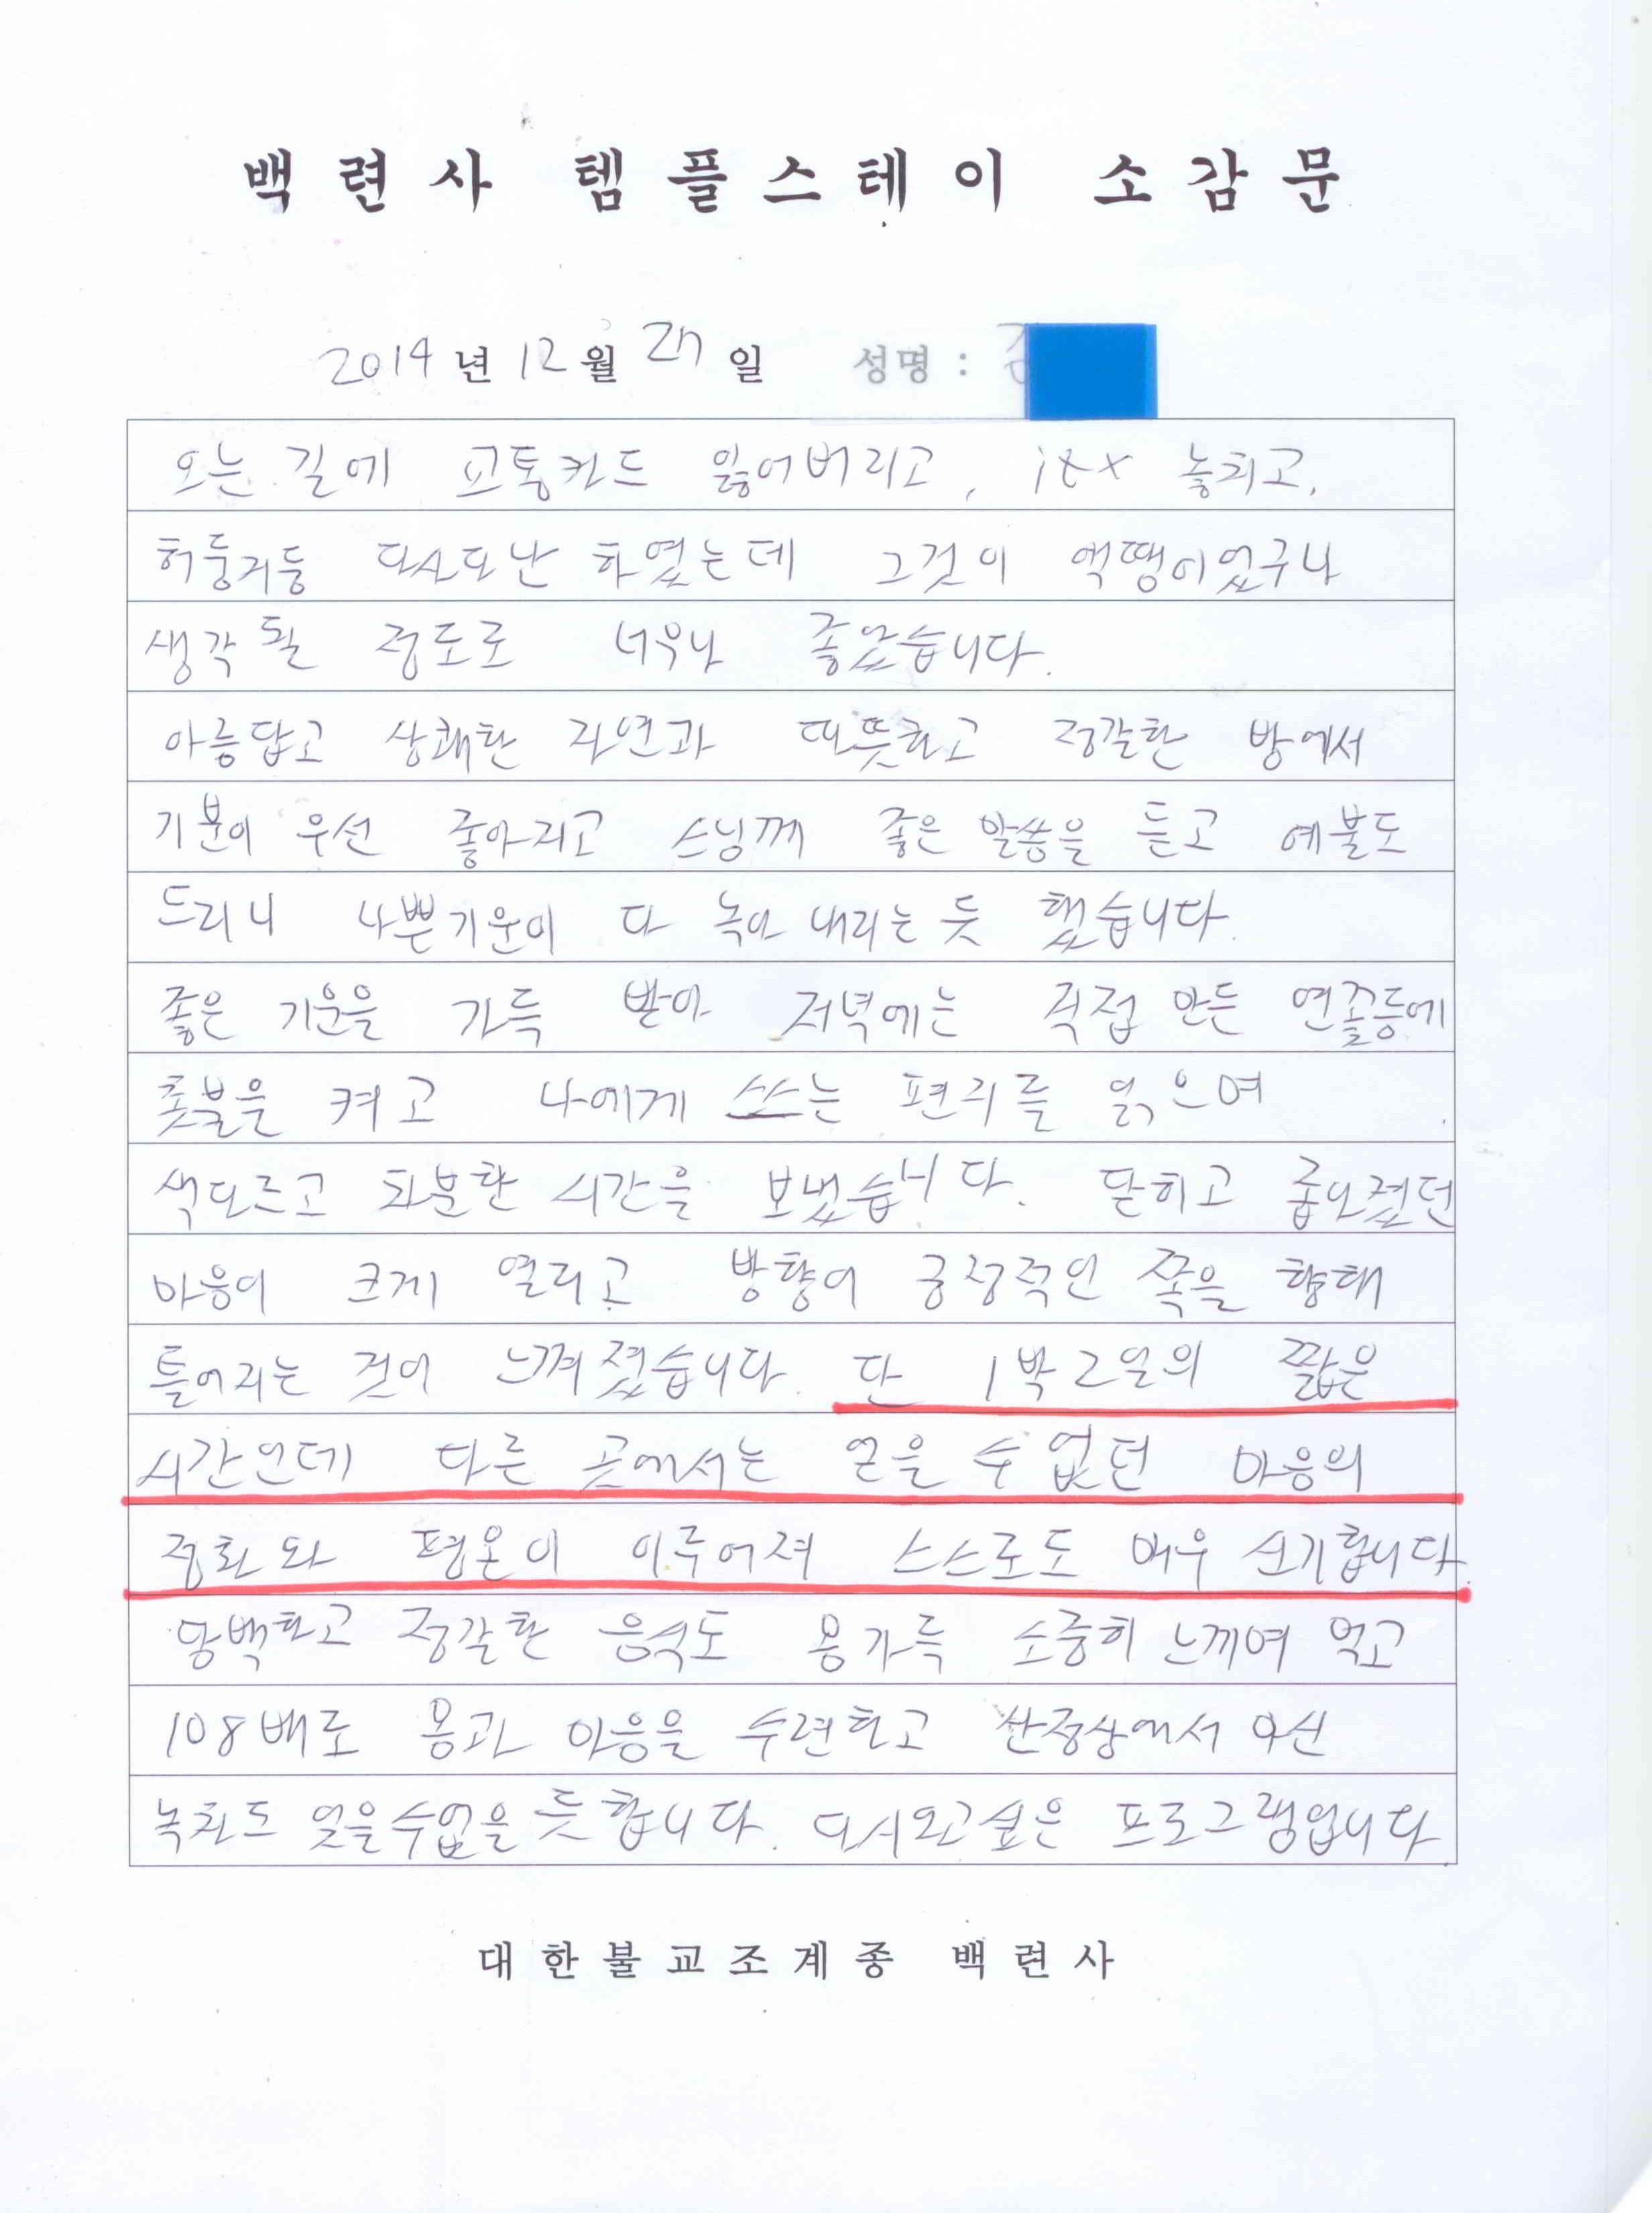 백련사 템플스테이 소감문
2014년 12월 27일 성명 : 김
오는 길에 교통카드 잃어버리고, itx 놓치고,
허둥지둥 다사다난 하였는데 그것이 액땜이었구나
생각 될 정도로 너무나 좋았습니다.
아름답고 상쾌한 자연과 따뜻하고 정갈한 방에서
기분이 우선 좋아지고 스님께 좋은 말씀을 듣고 예불도
드리니 나쁜기운이 다 녹아 내리는 듯 했습니다.
좋은 기운을 가득 받아 저녁에는 직접 만든 연꽃등에
촛불을 켜고 나에게 쓰는 편지를 읽으며
색다르고 차분한 시간을 보냈습니다. 닫히고 좁아졌던
마음이 크게 열리고 방향이 긍정적인 쪽을 향해
틀어지는 것이 느껴졌습니다. 단 1박2일의 짧은
시간인데 다른 곳에서는 얻을 수 없던 마음의
정화와 평온이 이루어져 스스로도 매우 신기합니다.
담백하고 정갈한 음식도 몸가득 소중히 느끼며 먹고
108배로 몸과 마음을 수련하고 산정상에서 마신
녹차도 잊을수없을 듯 합니다. 다시오고싶은 프로그램입니다.
대한불교조계종 백련사